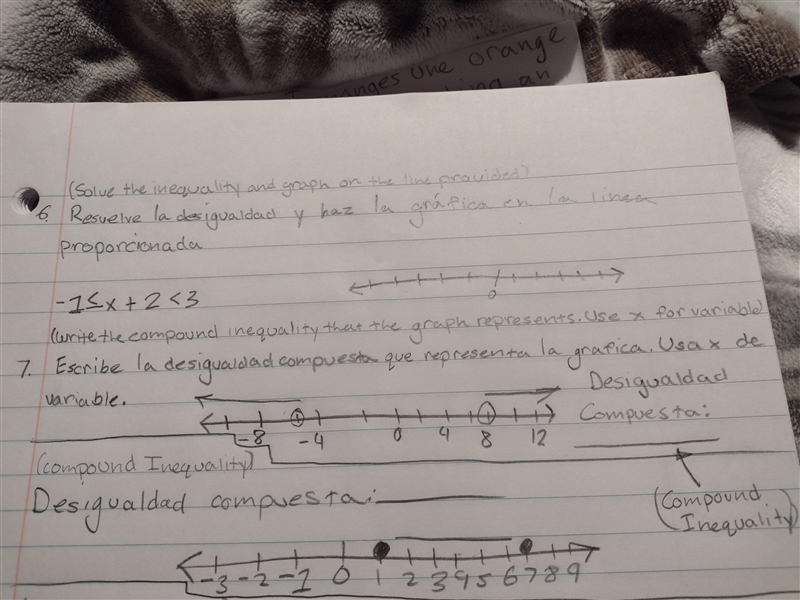 anges one orange
ing an
(Solve the inequality and graph on the line provided)
6. Resuelve la desigualdad y haz la gráfica en la linea
proporcionada
-1≤x+2<3
0
(write the compound inequality that the graph represents. Use x for variable)
7. Escribe la desigualdad compuesta que representa la grafica. Usa x de
variable.
Desigualdad
Compuesta:
-8 -4 0 4 8 12
(compound Inequality)
Desigualdad compuesta:
(Compound
Inequality)
-3 -2 -1 0 1 2 3 4 5 6 7 8 9